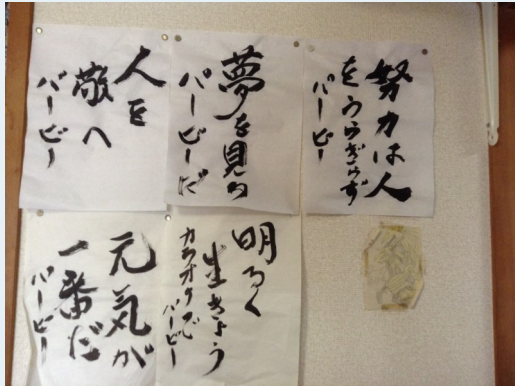 努力は人
をうらぎらず
バービー
夢を見る
バービーだ
人を
敬へ
バービー
明るく
生きよう
カラオケで
バービー
元気が
一番だ
バービー